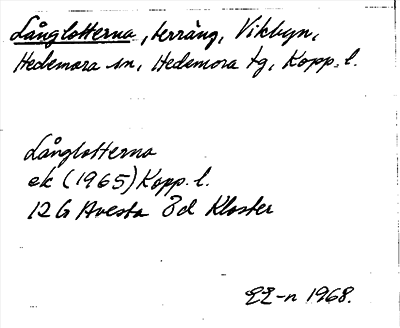 Långlotterna, terräng, Vikbyn,
Hedemora sn, Hedemora tg, Kopp. l.
Långlotterna
ek (1965) Kopp. l.
12 G Avesta 8d Kloster
1968.